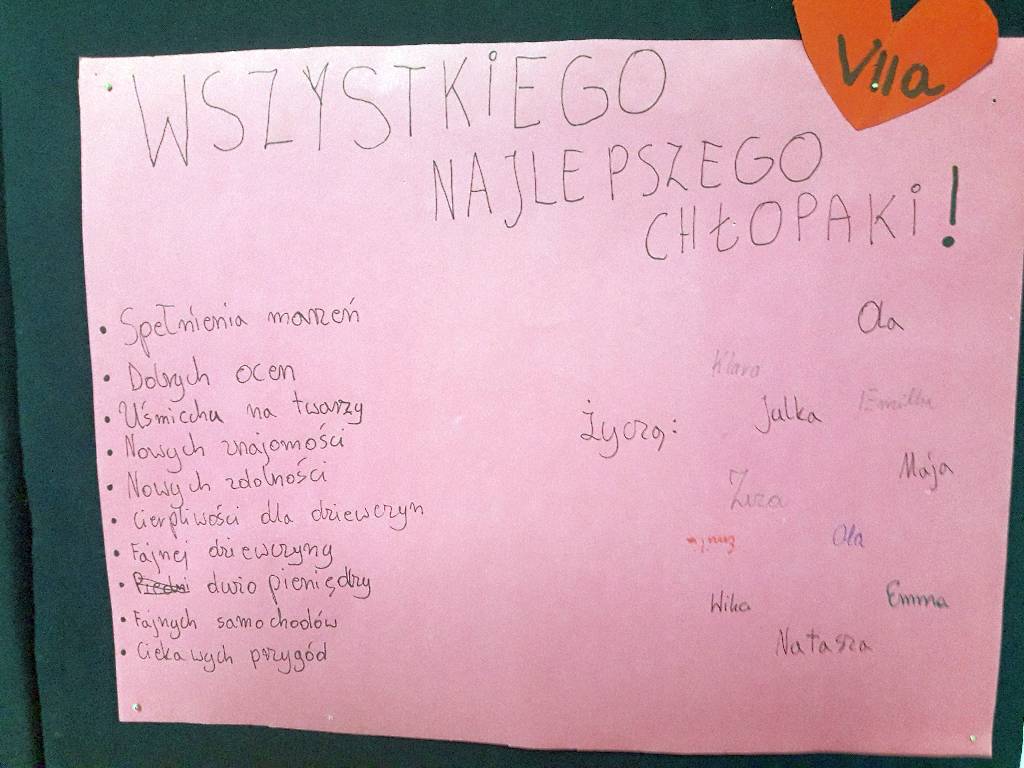 VIIa
WSZYSTKiEGO
NAJLEPSZEGO
CHŁOPAKi!
• Spełnienia marzeń
• Dobrych ocen
• Uśmiechu na twarzy
• Nowych znajomości
• Nowych zdolności
• Cierpliwości dla dziewczyn
• Fajnej dziewczyny
• dużo pieniędzy
• Fajnych samochodów
• Ciekawych przygód
Życzą:
Ola
Klara
Emilka
Julka
Maja
Zuza
Ola
Wika
Emma
Natasza